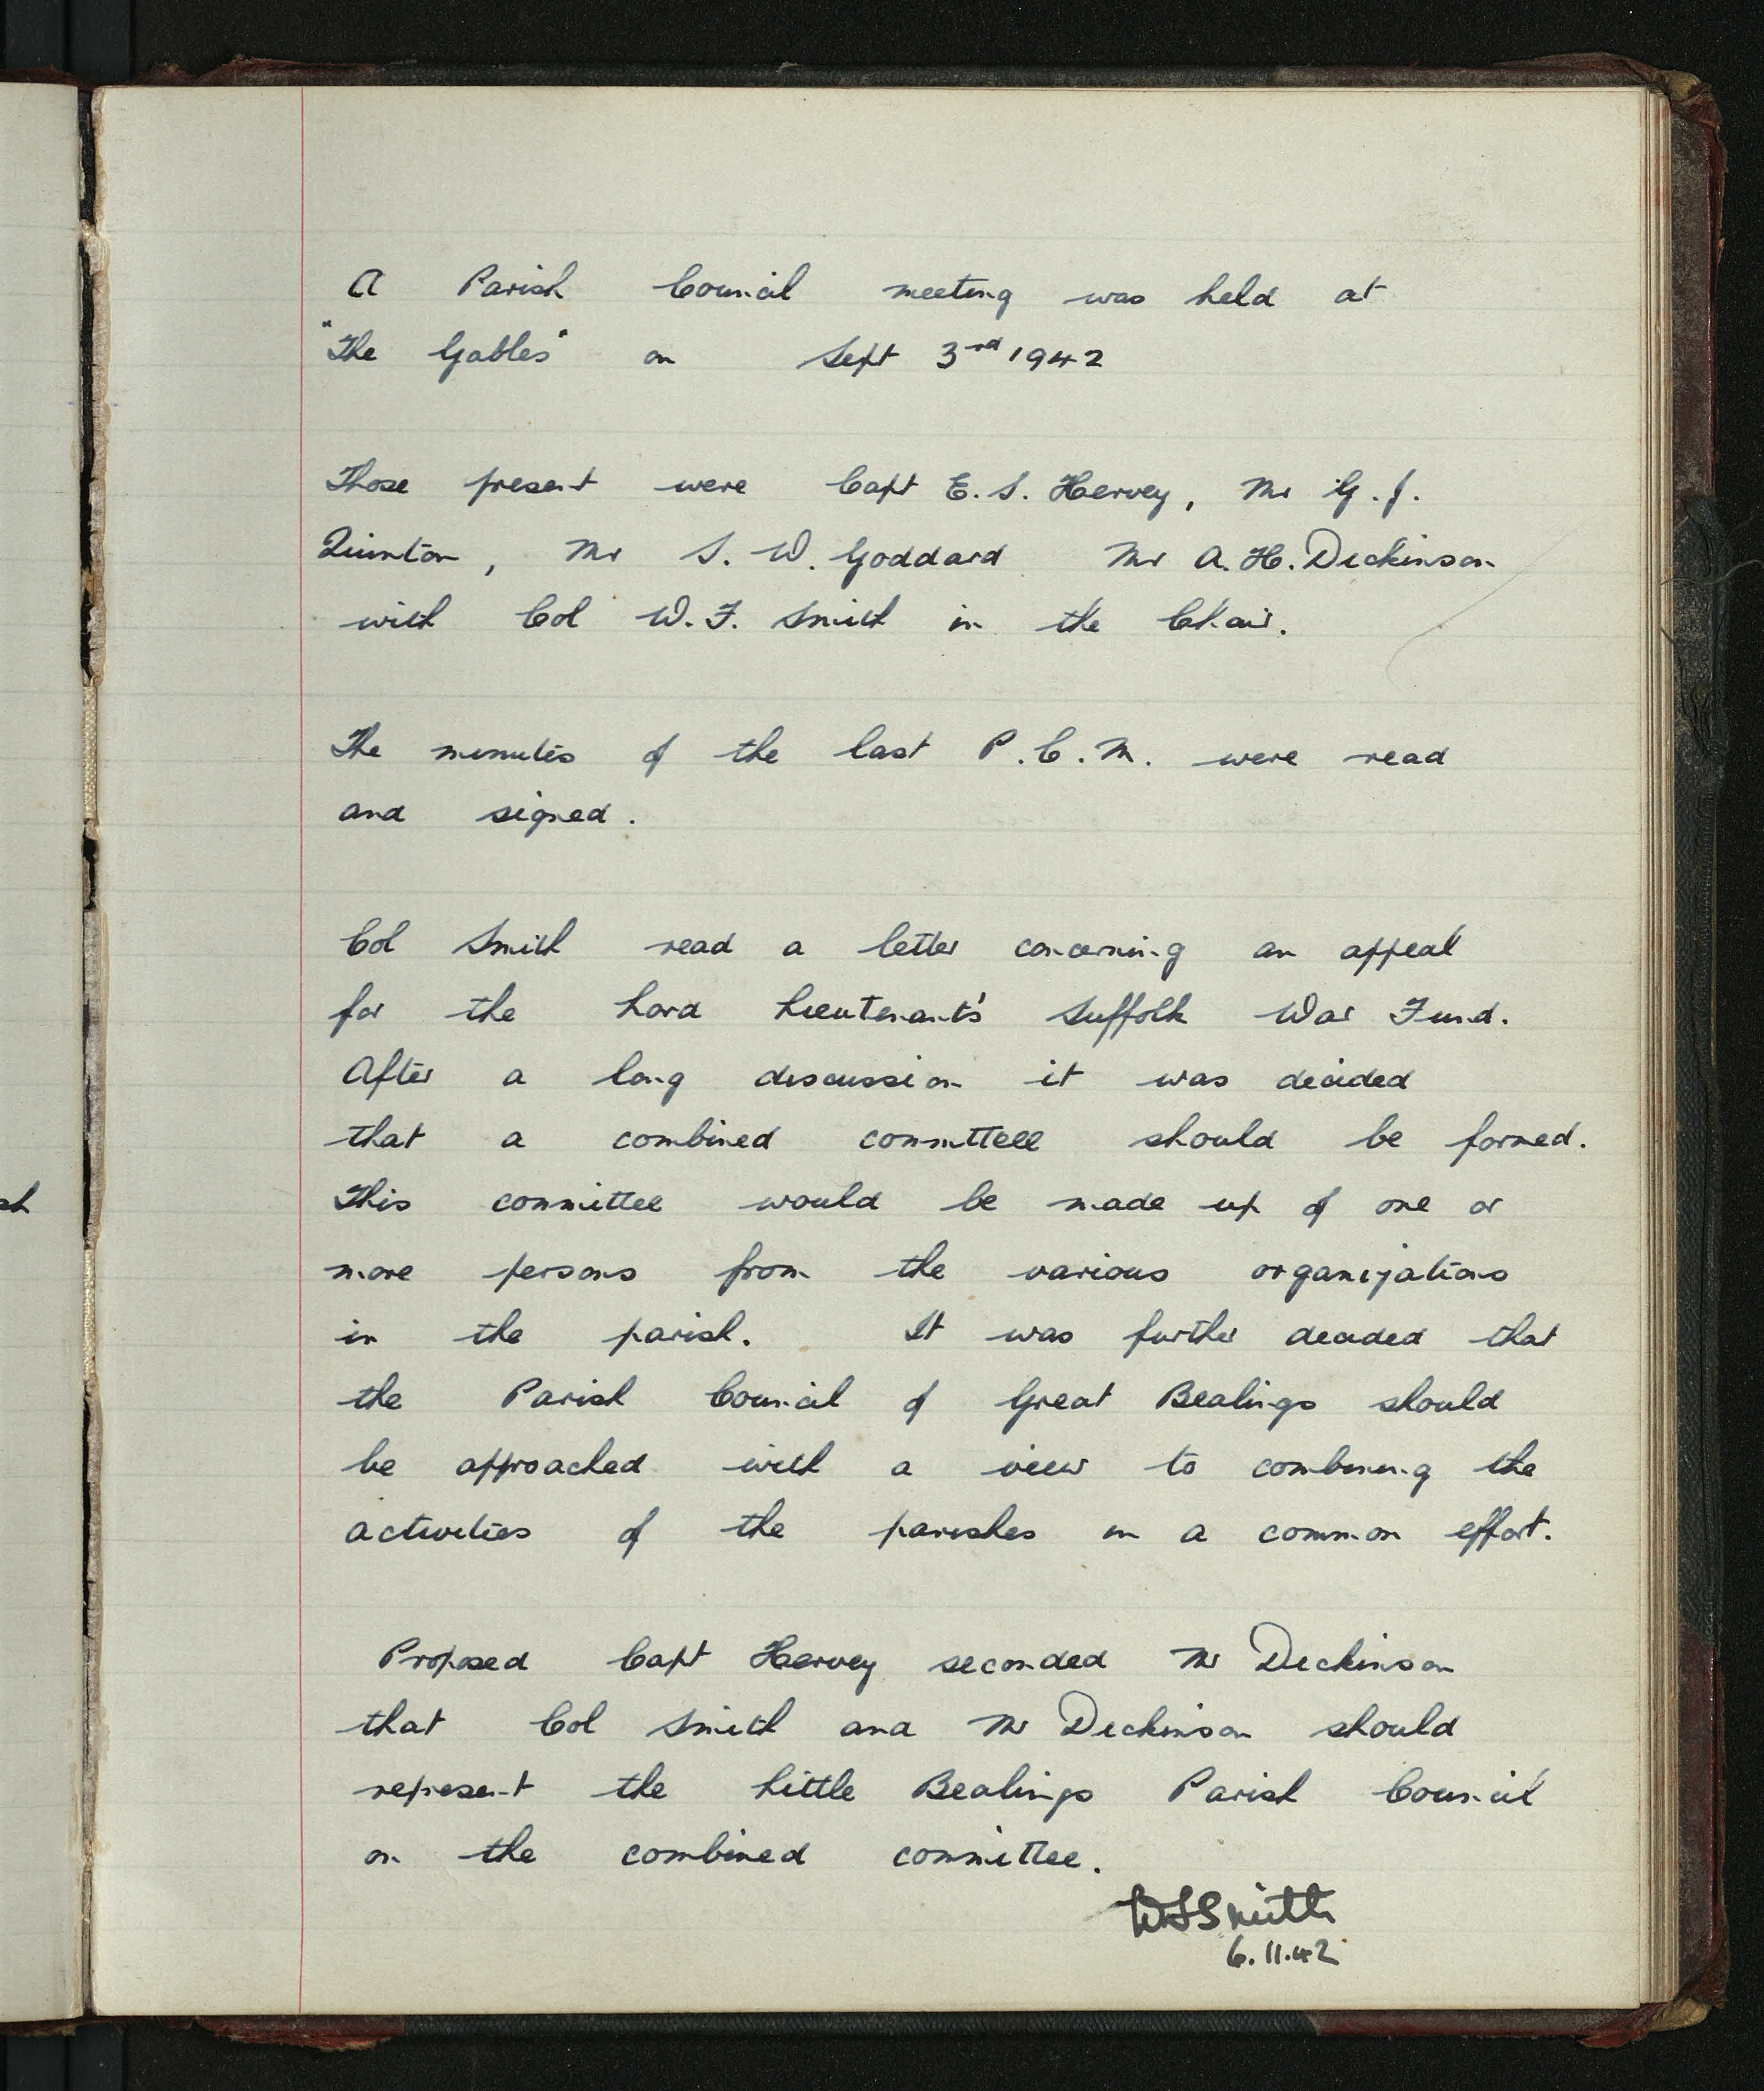 A Parish Council meeting was held at
"The Gables" on Sept 3rd 1942
Those present were Capt E. S. Hervey, Mr G. J.
Quinton, Mr S. W. Goddard Mr A. H. Dickinson
with Col W. F. Smith in the Chair.
The minutes of the last P.C.M. were read
and signed.
Col Smith read a letter concerning an appeal
for the Lord Lieutenant's Suffolk War Fund.
After a long discussion it was decided
that a combined committee should be formed.
This committee would be made up of one or
more persons from the various organizations
in the parish. It was further decided that
the Parish Council of Great Bealings should
be approached with a view to combining the
activities of the parishes in a common effort.
Proposed Capt Hervey seconded Mr Dickinson
that Col Smith and Mr Dickinson should
represent the Little Bealings Parish Council
on the combined committee.
WFSmith
6.11.42